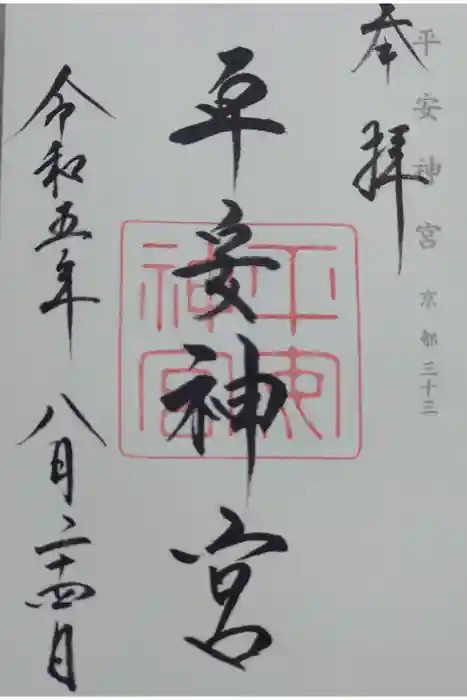 平安神宮 京都三十三
奉拝
平安神宮
平安神宮
令和五年 八月二十四日